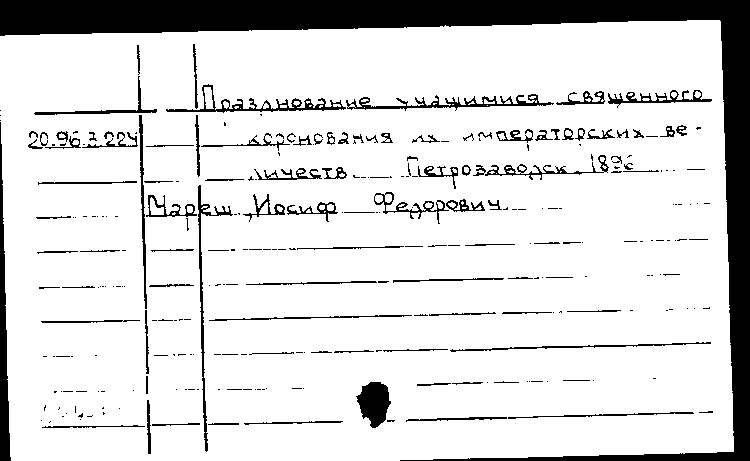 Празднование учащимися священного
20.96.3.224 коронования их императорских ве-
личеств. Петрозаводск, 1896
Мареш, Иосиф Федорович